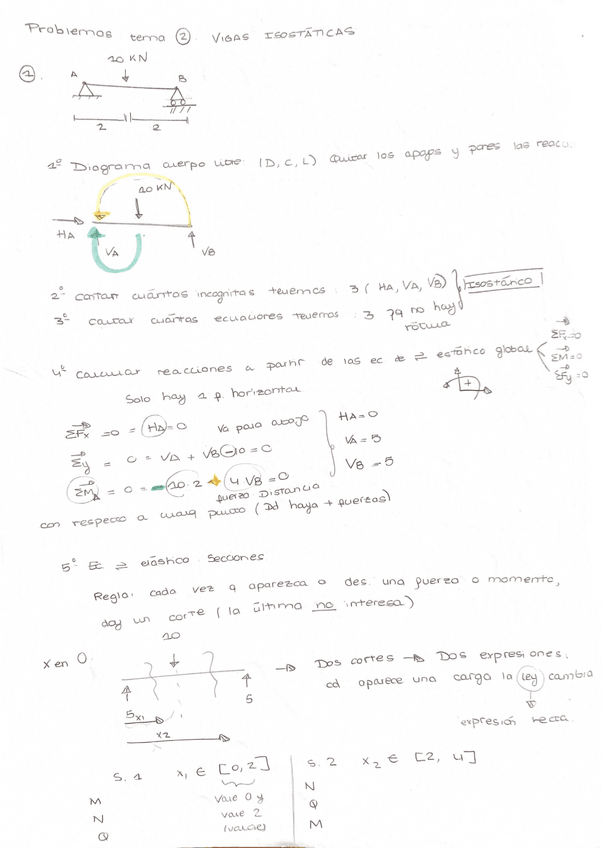 Problemas tema ② VIGAS ISOSTÁTICAS
① 10 KN
A B
2 2
1º Diagrama cuerpo libre (D, C, L) Quitar los apoyos y pones las reacc.
10 KN
HA VA VB
2º contar cuántas incognitas tenemos : 3 ( HA, VA, VB) Isostático
3º contar cuántas ecuaciones tenemos : 3 pq no hay
rótula
4º calcular reacciones a partir de las ec de ⇌ estático global
ΣFx=0
ΣM=0
ΣFy=0
+
Solo hay 1 p. horizontal
ΣFx =0 = HA=0 va para abajo HA=0
Σy = 0 = VA + VB-10 = 0 VA = 5
ΣMA = 0 = -10·2 + 4 VB = 0 VB = 5
fuerza DISTANCIA
con respecto a cualq punto (Dd haya + fuerzas)
5º Ec ⇌ elástico. Secciones
Regla: cada vez q aparezca o des. una fuerza o momento,
doy un corte ( la última no interesa)
10
x en 0. → Dos cortes → Dos expresiones.
cd aparece una carga la ley cambia
5 5
x1
x2
expresión recta.
S. 1 x1 ∈ [0, 2] S. 2 x2 ∈ [2, 4]
M vale 0 y N
N vale 2 Q
Q (valores) M